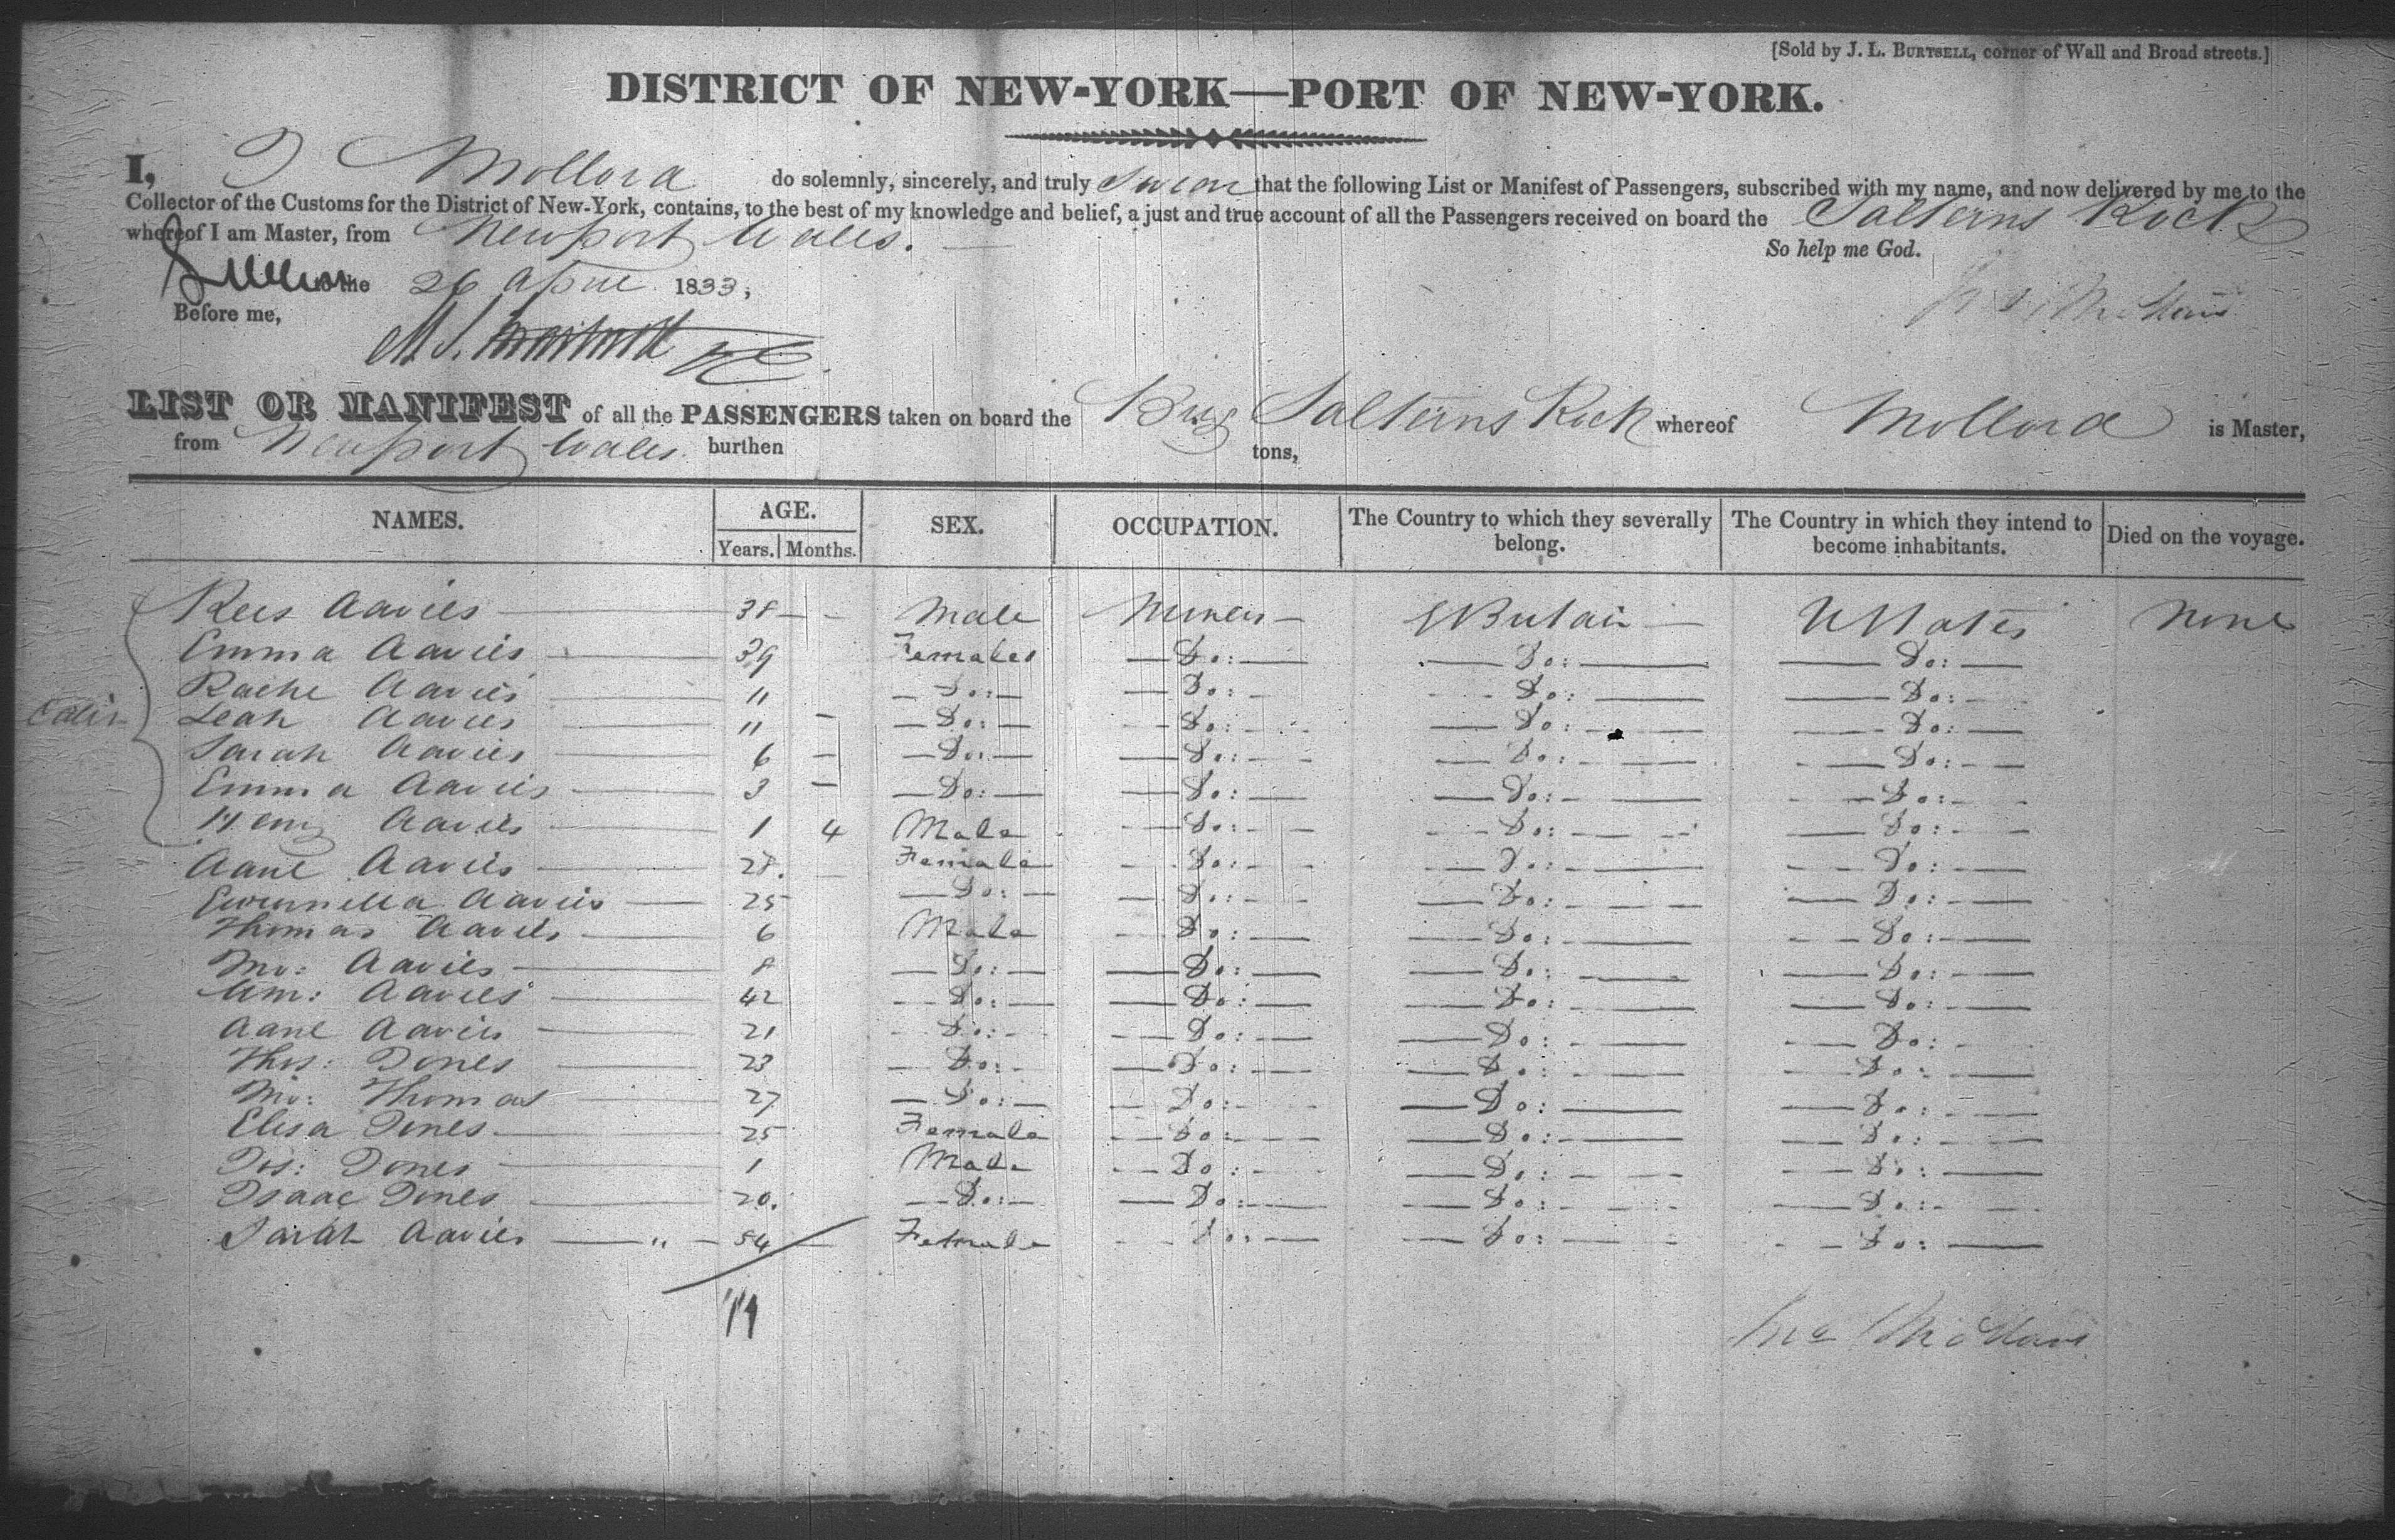 [Sold by J. L. BURTSELL, corner of Wall and Broad streets.]
DISTRICT OF NEW-YORK—PORT OF NEW-YORK.
I, J Mollord do solemnly, sincerely, and truly swear that the following List or Manifest of Passengers, subscribed with my name, and now delivered by me to the
Collector of the Customs for the District of New-York, contains, to the best of my knowledge and belief, a just and true account of all the Passengers received on board the Salterns Rock
whereof I am Master, from Newport Wales.
So help me God.
Sworn to the 26 April 1833,
Before me,
LIST OR MANIFEST of all the PASSENGERS taken on board the Brig Salterns Rock whereof Mollord is Master,
from Newport Wales. burthen tons,
NAMES. AGE. SEX. OCCUPATION. The Country to which they severally belong. The Country in which they intend to become inhabitants. Died on the voyage.
Years. Months.
Rees Davies 38 Male Miners GBritain UStates None
Emma Davies 39 Females Do: Do: Do:
Rache Davies 11 Do: Do: Do: Do:
Leah Davies 11 Do: Do: Do: Do:
Sarah Davies 6 Do: Do: Do: Do:
Emma Davies 3 Do: Do: Do: Do:
Henry Davies 1 4 Male Do: Do: Do:
Jane Davies 28. Female Do: Do: Do:
Davies 25 Do: Do: Do: Do:
Thomas Davies 6 Male Do: Do: Do:
Davies 8 Do: Do: Do: Do:
Wm: Davies 42 Do: Do: Do: Do:
Davies 21 Do: Do: Do: Do:
Thos: Jones 23 Do: Do: Do: Do:
Thomas 27 Do: Do: Do: Do:
Elisa Jones 25 Female Do: Do: Do:
Jos: Jones 1 Male Do: Do: Do:
Isaac Jones 20. Do: Do: Do: Do:
Sarah Davies " 54 Female Do: Do: Do:
19